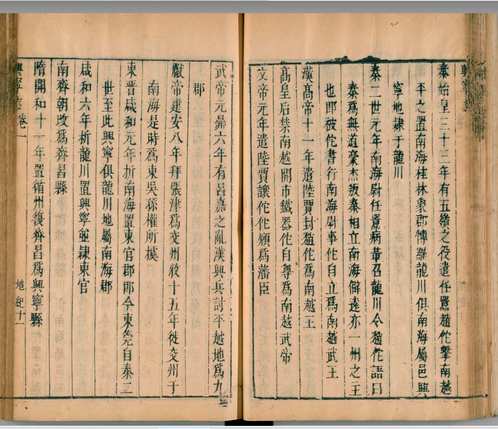 秦始皇三十三年有五嶺之役遣任囂趙佗擊南越
平之置南海桂林象郡博羅龍川俱南海屬邑興
寧地隸于龍川
秦二世元年南海尉任囂病革召龍川令趙佗語曰
秦為無道豪杰叛秦相立南海僻遠亦一州之王
也即被佗書行南海尉事佗自立為南越武王
漢高帝十一年遣陸賈封趙佗為南越王
高皇后禁南越關市鐵器佗自尊為南越武帝
文帝元年遣陸賈讓佗佗願為藩臣
武帝元鼎六年有呂嘉之亂漢興兵討平越地為九
郡
獻帝建安八年拜張津為交州牧十五年徙交州于
南海是時為東吳孫權所據
東晉咸和元年析南海置東官郡郡令東莞自秦二
世至此興寧俱龍川地屬南海郡
咸和六年析龍川置興寧並隸東官
南齊朝改為齊昌縣
隋開和十一年置循州復齊昌為興寧縣
興寧 卷一
地紀十一